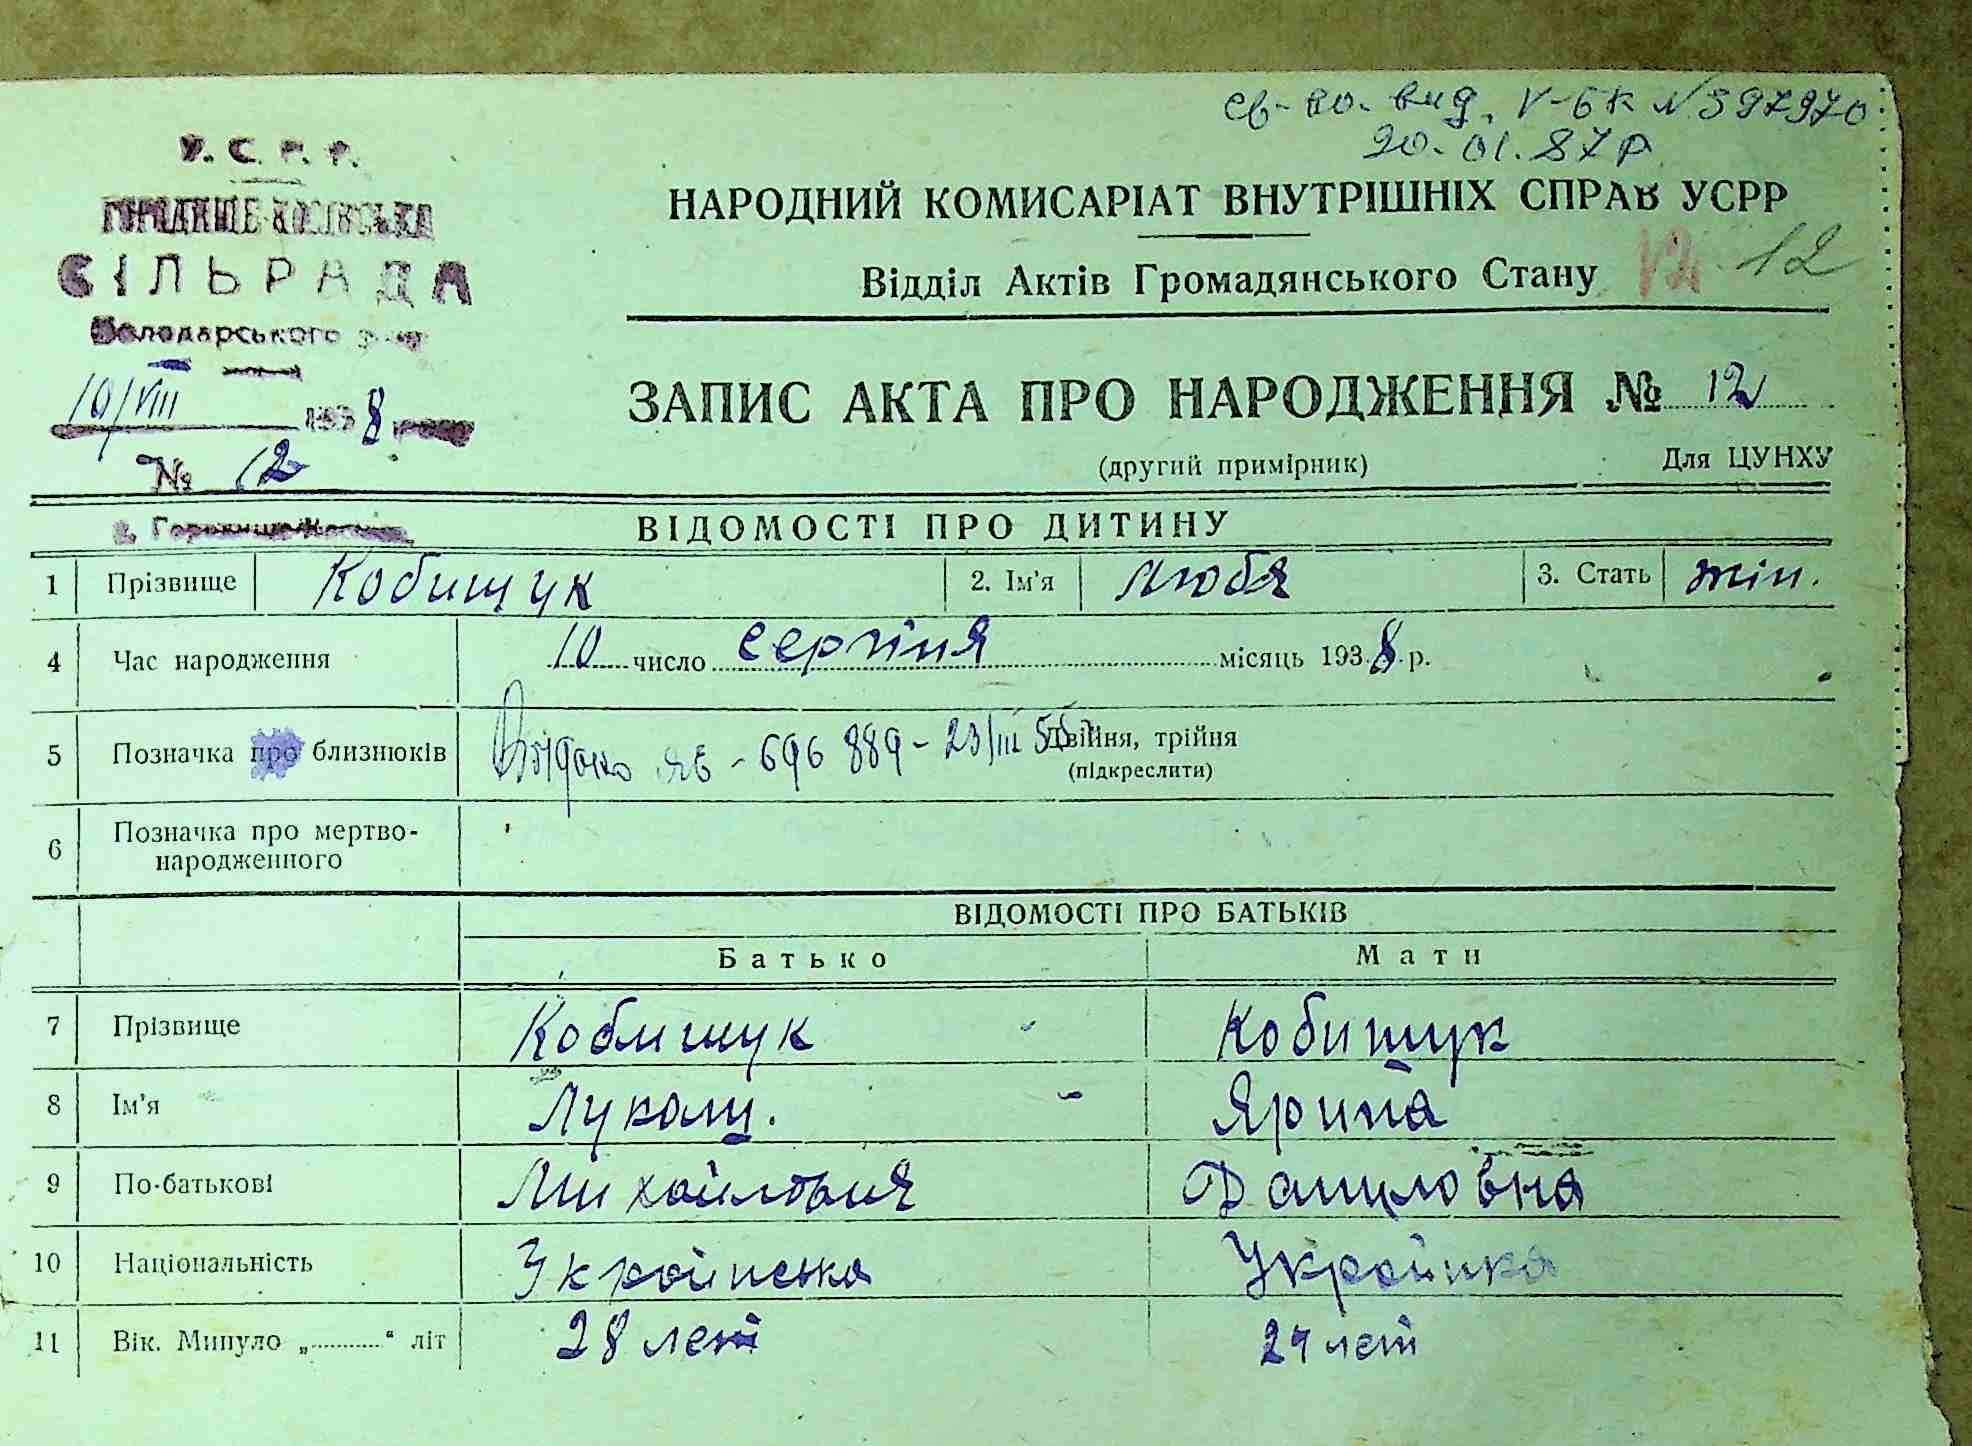 св-во. вид. V-БК № 397970
20.01.87 р
У.С.Р.Р.
ГОРОДИЩЕ-КОСІВСЬКА
СІЛЬРАДА
Володарського р-ну
10/VIII 1938
№ 12
НАРОДНИЙ КОМИСАРІАТ ВНУТРІШНІХ СПРАВ УСРР
Відділ Актів Громадянського Стану 12 12
ЗАПИС АКТА ПРО НАРОДЖЕННЯ № 12
(другий примірник) Для ЦУНХУ
ВІДОМОСТІ ПРО ДИТИНУ
1 Прізвище Кобищук 2. Ім'я Люба 3. Стать жін.
4 Час народження 10 число серпня місяць 1938 р.
5 Позначка про близнюків ЯБ - 696 889 - 23/III 55 двійня, трійня
(підкреслити)
6 Позначка про мертво-
народженного
ВІДОМОСТІ ПРО БАТЬКІВ
Батько Мати
7 Прізвище Кобищук Кобищук
8 Ім'я Ярина
9 По-батькові Даниловна
10 Національність Українська Українка
11 Вік. Минуло „ “ літ 28 лет 24 лет